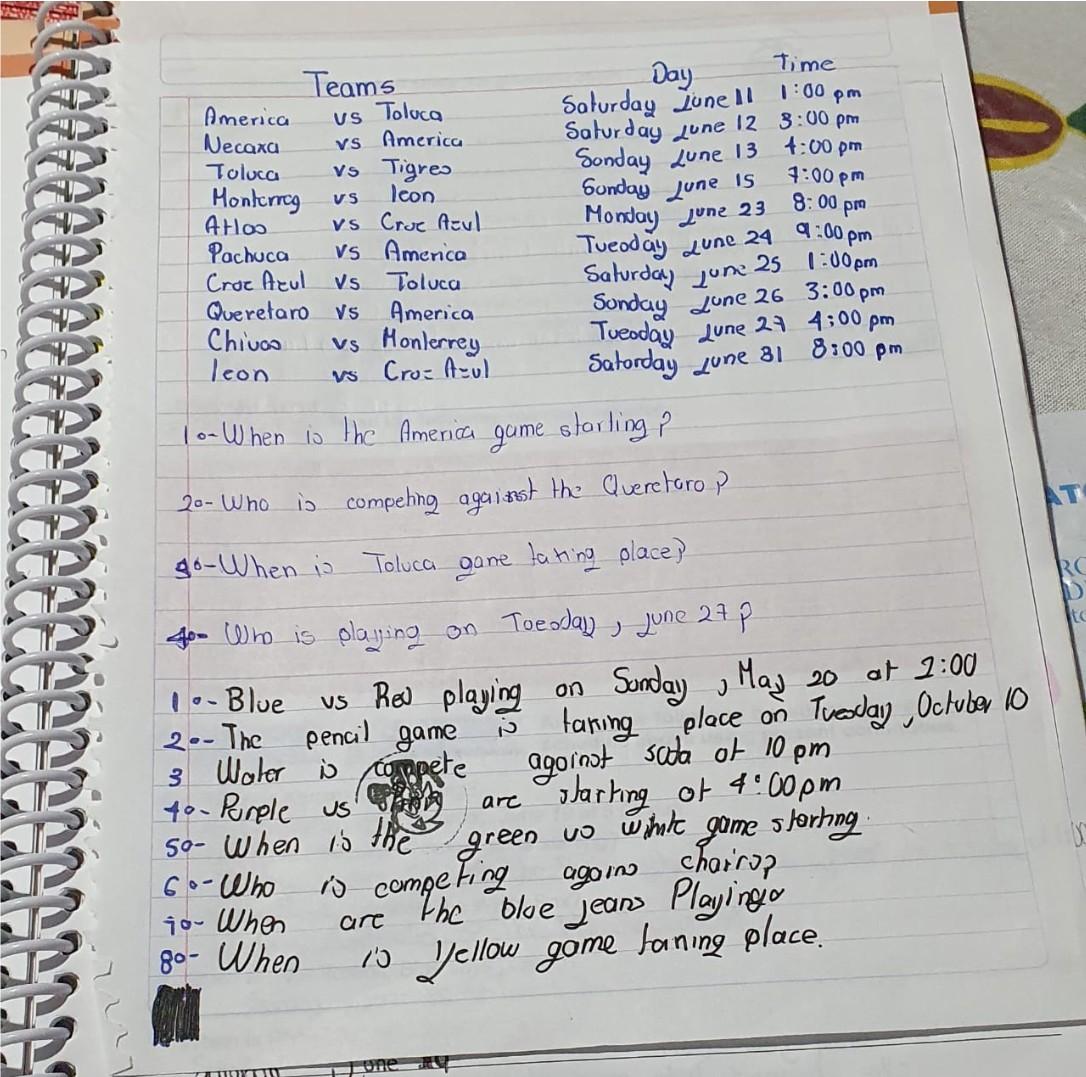 Teams Day Time
America vs Toluca Saturday June 11 1:00 pm
Necaxa vs America Saturday June 12 3:00 pm
Toluca vs Tigres Sonday June 13 4:00 pm
Monterrey vs leon Sonday June 15 7:00 pm
Atlas vs Cruz Azul Monday June 23 8:00 pm
Pachuca vs America Tuesday June 24 9:00 pm
Cruz Azul vs Toluca Saturday June 25 1:00 pm
Queretaro vs America Sonday June 26 3:00 pm
Chivas vs Monterrey Tuesday June 27 4:00 pm
leon vs Cruz Azul Saturday June 31 8:00 pm
1.- When is the America game starting?
2.- Who is competing against the Queretaro?
3.- When is Toluca game taking place?
4.- Who is playing on Tuesday, June 27?
1.- Blue vs Red playing on Sonday, May 20 at 2:00
2.- The pencil game is taking place on Tuesday, October 10
3 Water is compete against soda at 10 pm
4.- Purple vs are starting at 4:00 pm
5.- When is the green vs white game starting.
6.- Who is competing agains chairs?
7.- When are the blue jeans Playing
8.- When is yellow game taking place.
June